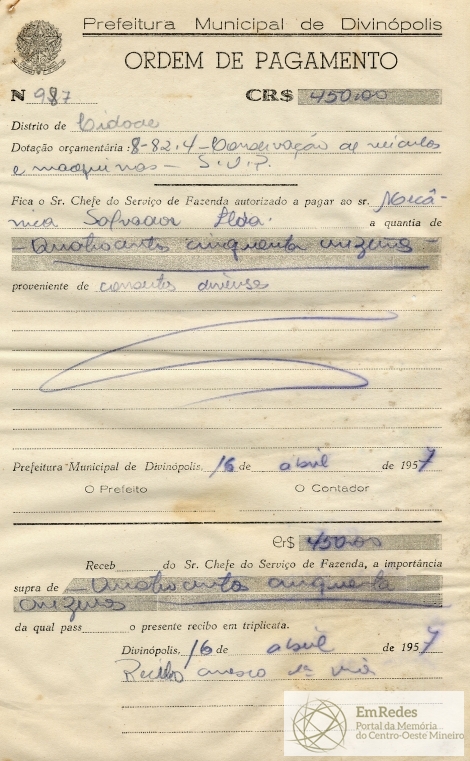 Prefeitura Municipal de Divinópolis
ORDEM DE PAGAMENTO
N 987 CR$ 450,00
Distrito de Cidade
Dotação orçamentária: 8-82.4 - Conservação de veículos
e maquinas - S.V.P.
Fica o Sr. Chefe do Serviço de Fazenda autorizado a pagar ao sr. Mecâ-
nica Salvador Ltda. a quantia de
- Quatrocentos cinquenta cruzeiros -
proveniente de consertos diversos
Prefeitura Municipal de Divinópolis, 16 de abril de 1957
O Prefeito O Contador
Cr$ 450,00
Receb do Sr. Chefe do Serviço de Fazenda, a importância
supra de - Quatrocentos cinquenta
cruzeiros
da qual pass o presente recibo em triplicata.
Divinópolis, 16 de abril de 1957
Recibo anexo 1a via
EmRedes
Portal da Memória
do Centro-Oeste Mineiro